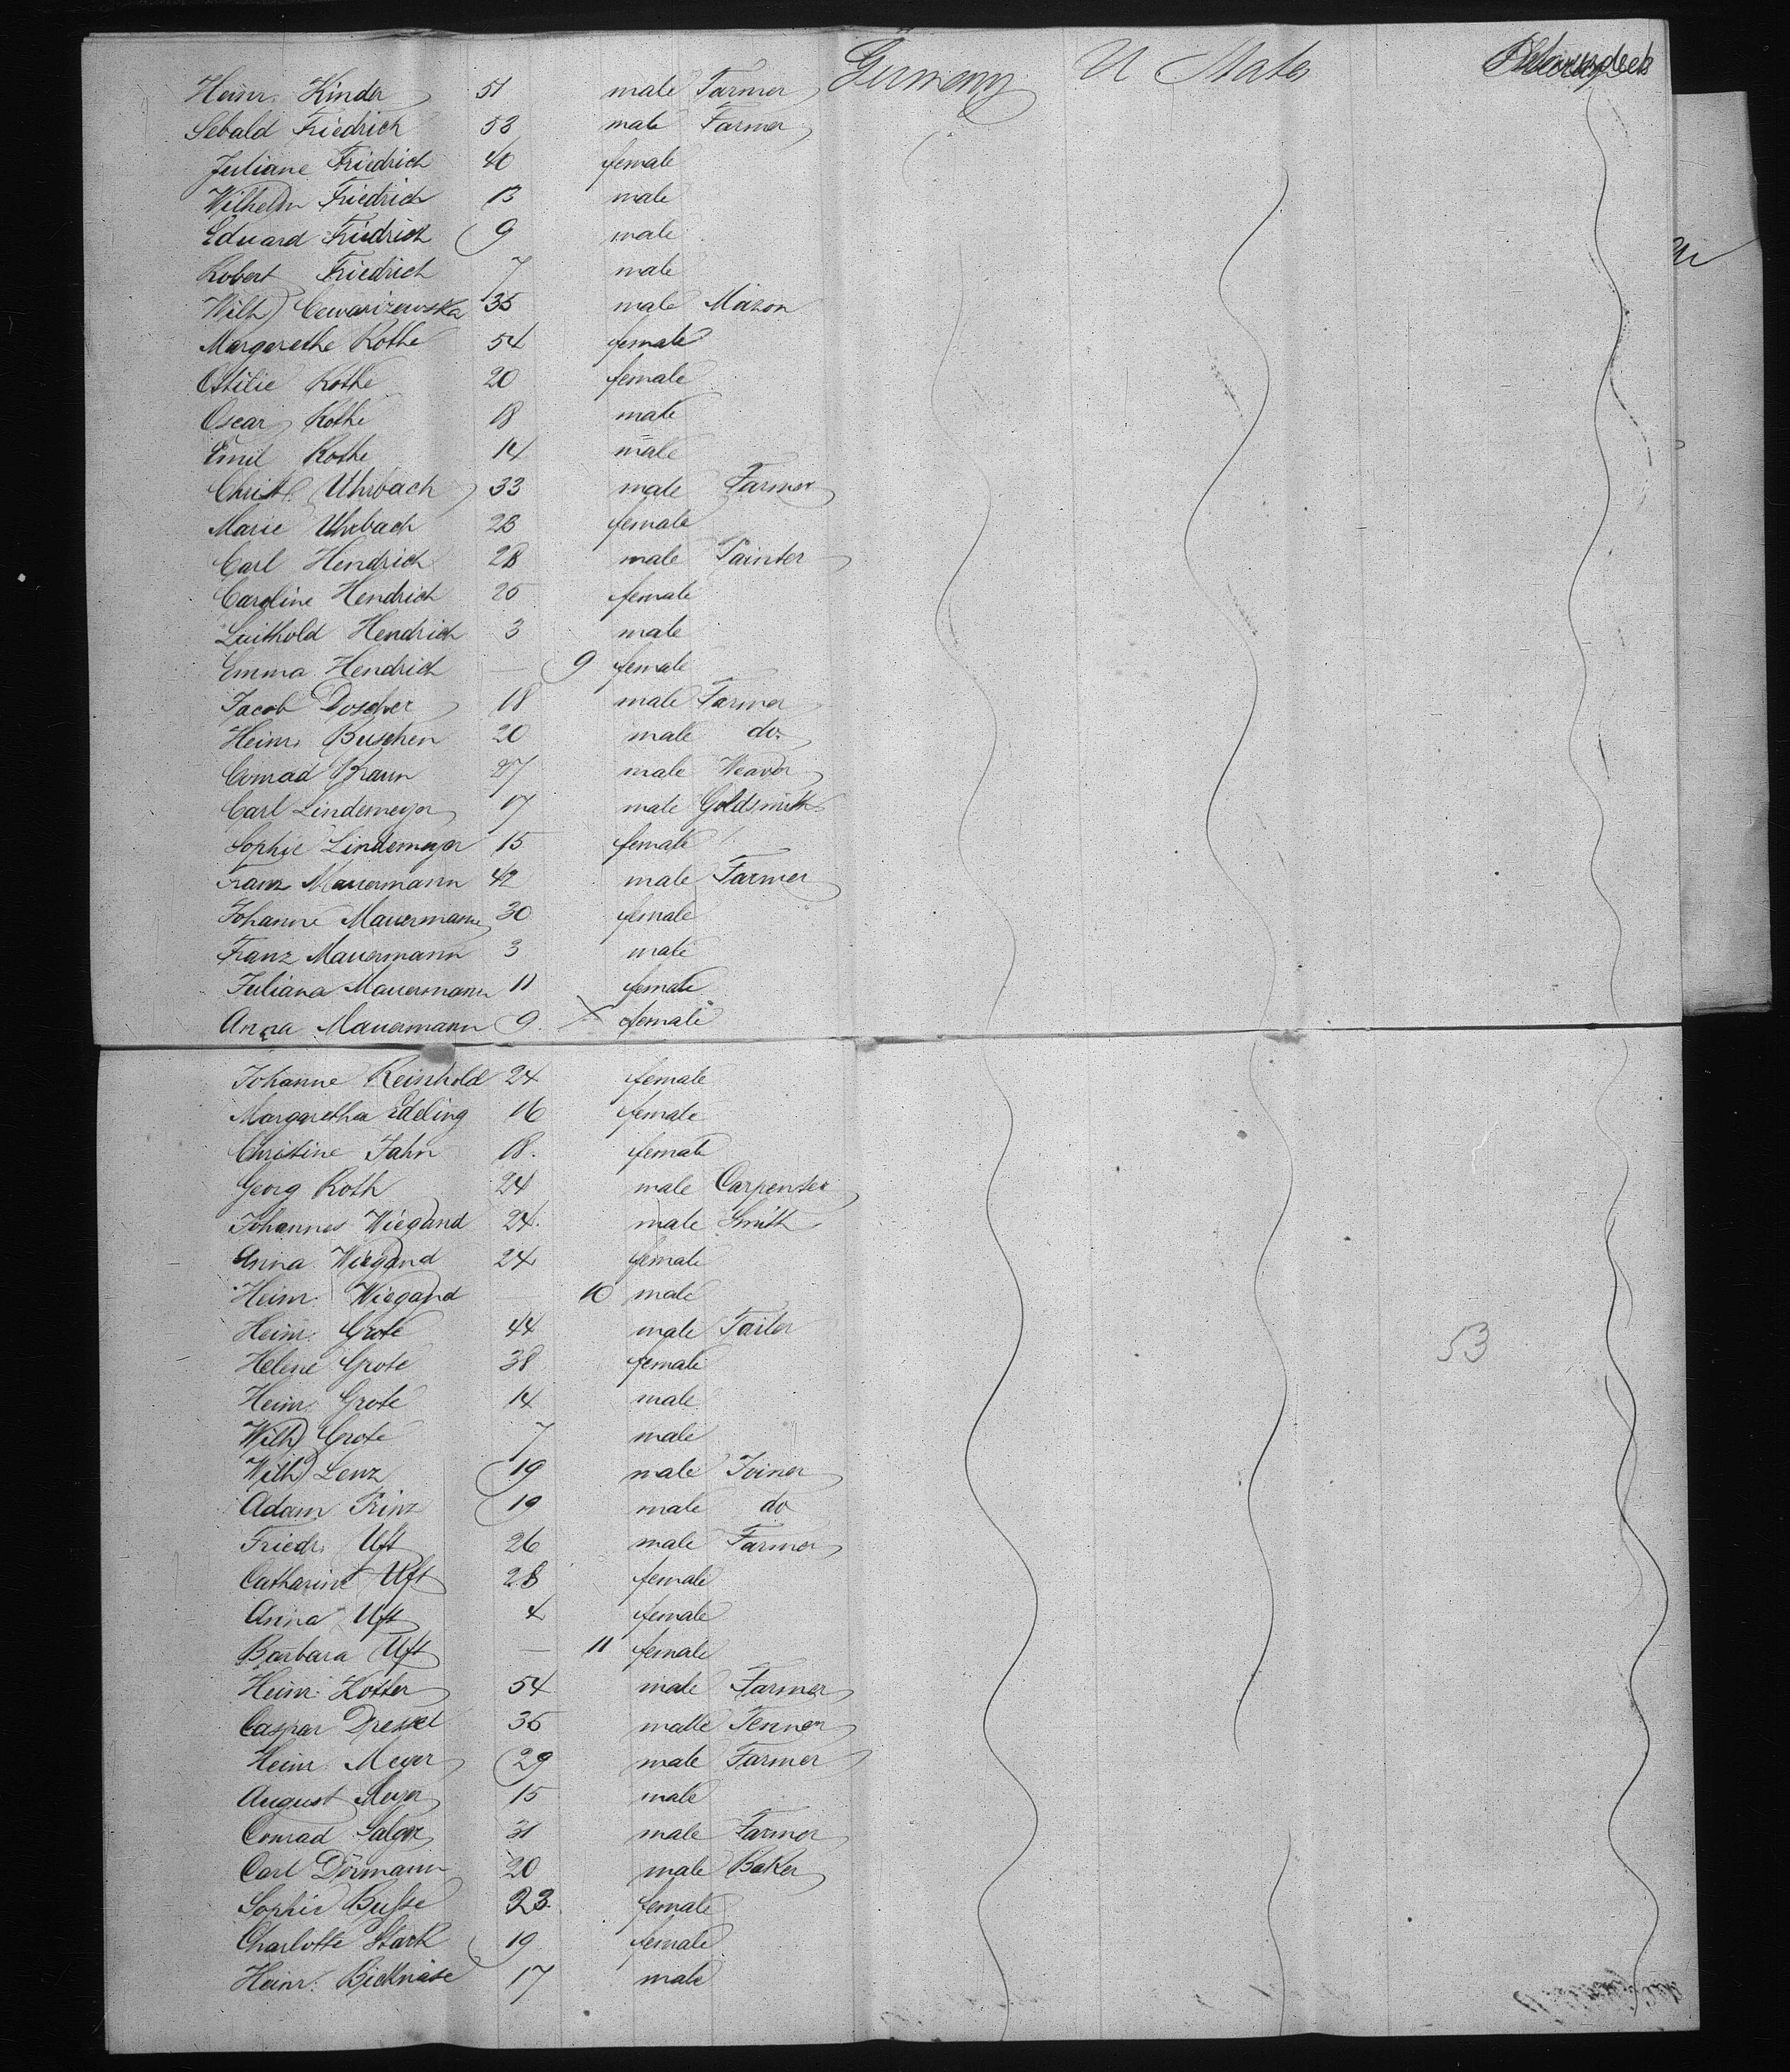 Heinr. Kinder 51 male Farmer Germany U States
Sebald Friedrich 53 male Farmer
Juliane Friedrich 40 female
Wilhelm Friedrich 13 male
Eduard Friedrich 9 male
Robert Friedrich 7 male
Wilh. 35 male Mason
Margarethe Rothe 54 female
Ottilie Rothe 20 female
Oscar Rothe 18 male
Emil Rothe 14 male
Christ. Uhrbach 33 male Farmer
Marie Uhrbach 28 female
Carl Hendrich 28 male Painter
Caroline Hendrich 25 female
Luithold Hendrich 3 male
Emma Hendrich — 9 female
Jacob Doscher 18 male Farmer
Heinr. Buschen 20 male do.
Conrad Braun 27 male Weaver
Carl Lindemeyer 17 male Goldsmith
Sophie Lindemeyer 15 female
Franz Mauermann 42 male Farmer
Johanne Mauermann 30 female
Franz Mauermann 3 male
Juliana Mauermann 11 female
Anna Mauermann 9 X female
Johanne Reinhold 24 female
Margaretha Edeling 16 female
Christine Jahn 18. female
Georg Roth 24 male Carpenter
Johannes Wiegand 24. male Smith
Anna Wiegand 24 female
Heinr. Wiegand — 10 male
Heinr. Grote 44 male Tailer
Helene Grote 38 female 53
Heinr. Grote 14 male
Wilh. Grote 7 male
Wilh. Lenz 19 male Joiner
Adam Prinz 19 male do
Friedr. Uft 26 male Farmer
Catharine Uft 28 female
Anna Uft 4 female
Barbara Uft — 11 female
Heinr. Kotter 54 male Farmer
Caspar Dressel 35 malle Tenner
Heinr. Meyer 29 male Farmer
August Meyer 15 male
Conrad Salger 31 male Farmer
Carl Dörmann 20 male Baker
Sophie Busse 23. female
Charlotte Stark 19 female
Heinr. Bicknäse 17 male